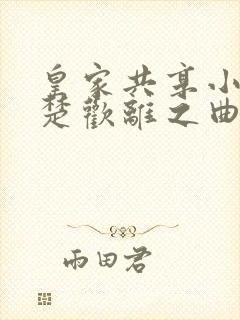 皇家共享小
楚歡離之曲
雨田君